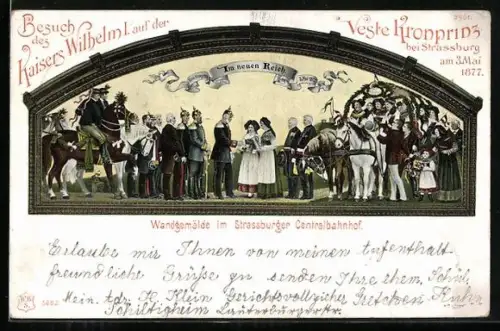 Besuch des Kaisers Wilhelm I. auf der
Veste Kronprinz
bei Strassburg
am 3. Mai
1877.
Im neuen Reich
Wandgemälde im Strassburger Centralbahnhof.
Erlaube mir Ihnen von meinen Aufenthalt
freundliche Grüße zu senden Ihre ehem. Schül.
Mein. Adr. H. Klein Gerichtsvollzieher Gretchen
Schiltigheim Lauterburgerstr.